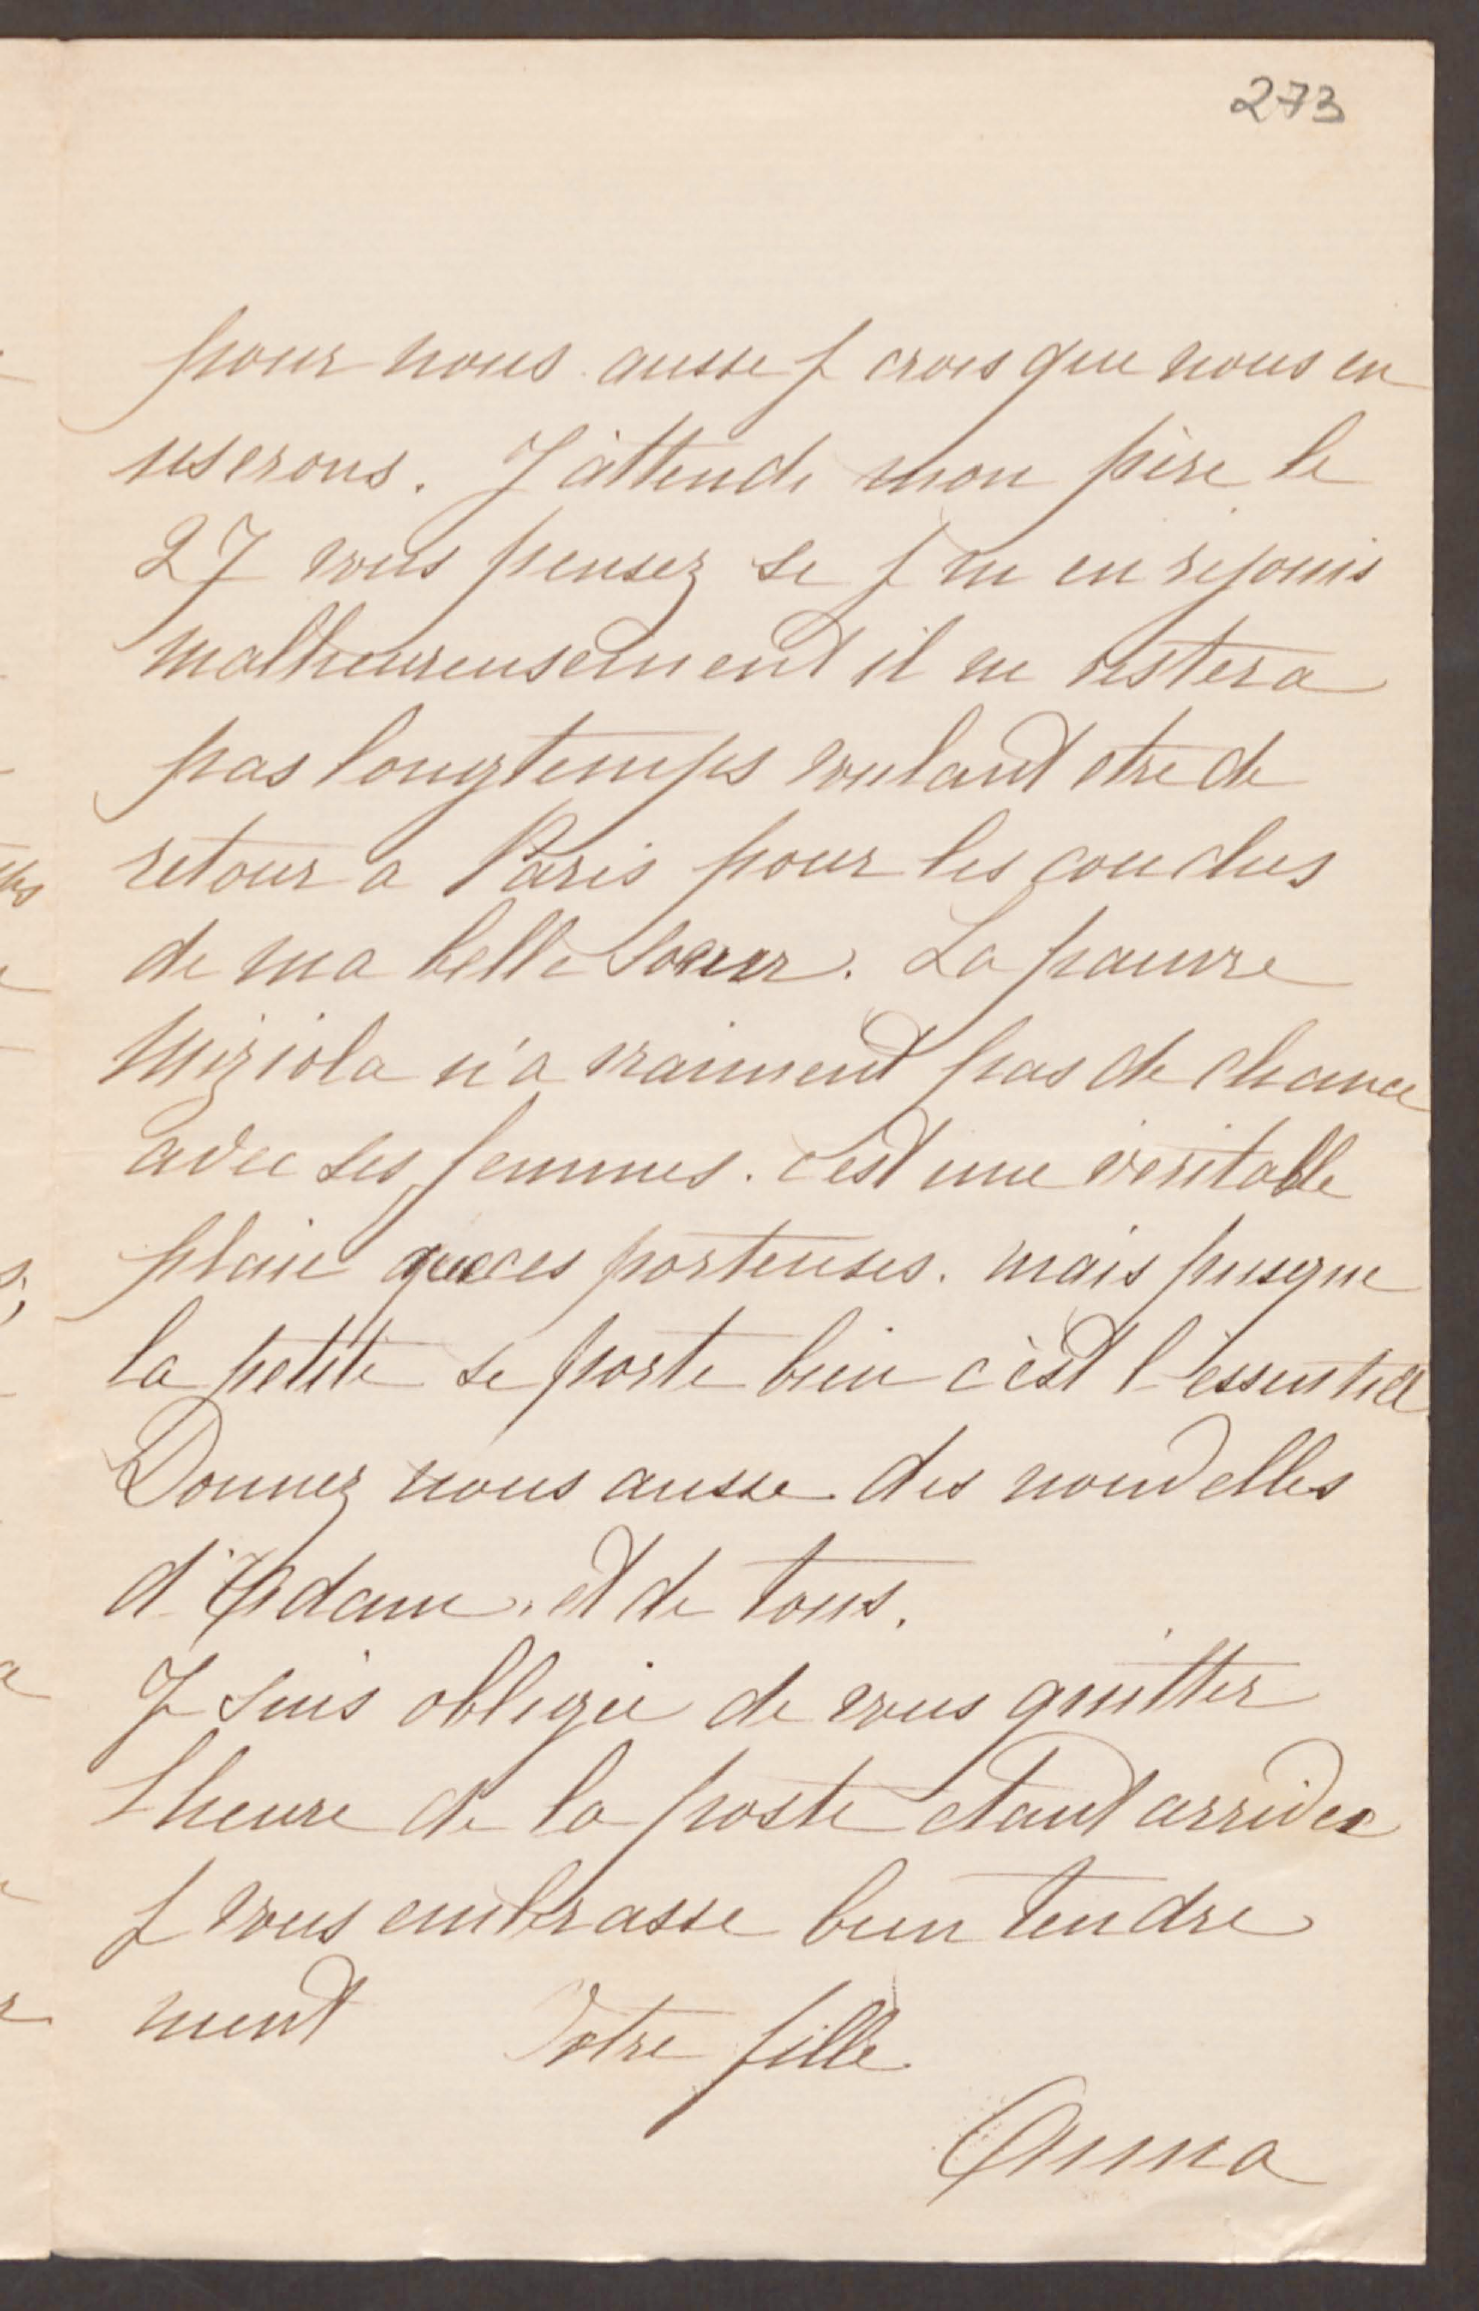 273
pour nous aussi je crois que nous en
userons. J'attends mon père le
27 vous pensez si je m'en rejouis
malheureusement il ne restera
pas longtemps voulant etre de
retour a Paris pour les couches
de ma belle Soeur. La pauvre
Miziola n'a vraiment pas de chance
avec ses femmes. c'est une veritable
plaie que ces porteuses. mais pusque
la petite se porte bien c'est l'essentiel
Donnez nous aussi des nouvelles
d'Adam. et de tous.
Je suis obligée de vous quitter
l'heure de la poste etant arrivée
je vous embrasse bien tendre
ment Votre fille
Anna